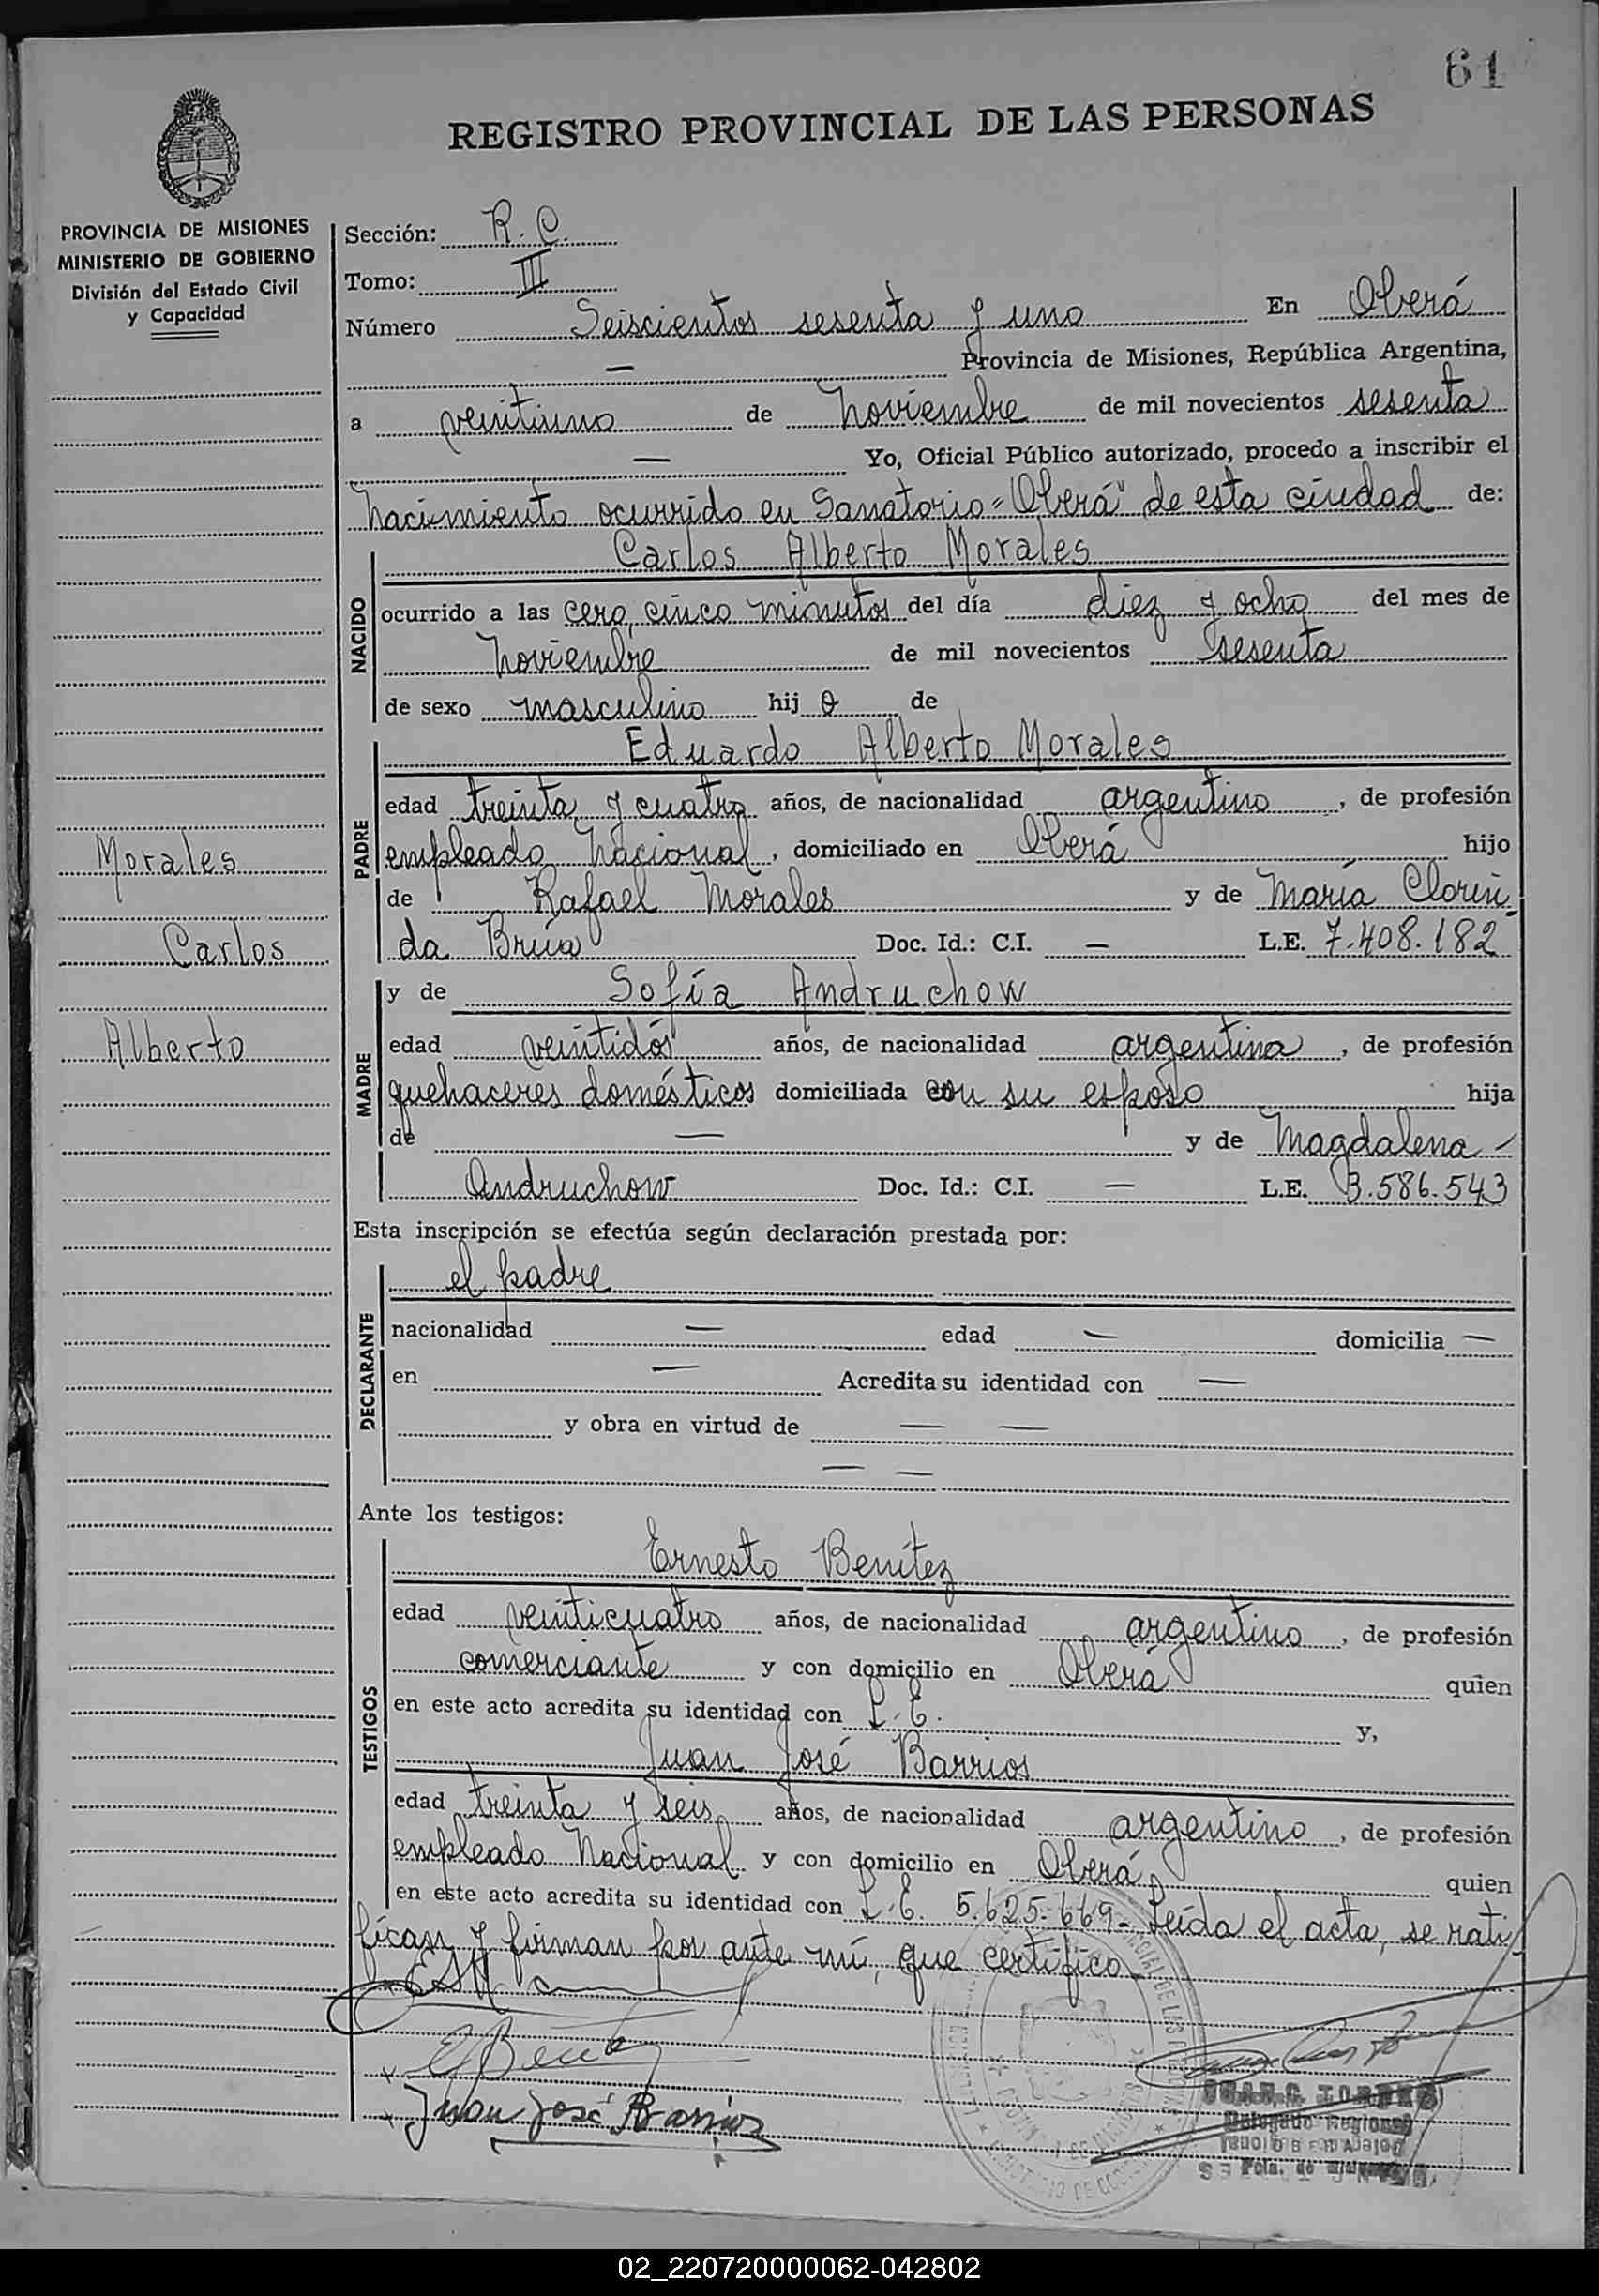 61
REGISTRO PROVINCIAL DE LAS PERSONAS
PROVINCIA DE MISIONES
MINISTERIO DE GOBIERNO
División del Estado Civil
y Capacidad
Sección: R. C.
Tomo: III
Número Seiscientos sesenta y uno En Oberá
— Provincia de Misiones, República Argentina,
a veintiuno de Noviembre de mil novecientos sesenta
— Yo, Oficial Público autorizado, procedo a inscribir el
nacimiento ocurrido en Sanatorio "Oberá" de esta ciudad de:
NACIDO
Carlos Alberto Morales
ocurrido a las cero, cinco minutos del día diez y ocho del mes de
Noviembre de mil novecientos sesenta
de sexo masculino hij o de
PADRE
Eduardo Alberto Morales
edad treinta y cuatro años, de nacionalidad argentino, de profesión
empleado Nacional, domiciliado en Oberá hijo
de Rafael Morales y de María Clorin-
da Doc. Id.: C.I. — L.E. 7.408.182
Morales
Carlos
Alberto
MADRE
y de Sofía Andruchow
edad veintidós años, de nacionalidad argentina, de profesión
quehaceres domésticos domiciliada con su esposo hija
de — y de Magdalena -
Andruchow Doc. Id.: C.I. — L.E. 3.586.543
Esta inscripción se efectúa según declaración prestada por:
DECLARANTE
el padre
nacionalidad — edad — domicilia —
en — Acredita su identidad con —
y obra en virtud de — —
— —
Ante los testigos:
TESTIGOS
Ernesto Benítez
edad veinticuatro años, de nacionalidad argentino, de profesión
comerciante y con domicilio en Oberá quien
en este acto acredita su identidad con L. E. y,
Juan José Barrios
edad treinta y seis años, de nacionalidad argentino, de profesión
empleado Nacional y con domicilio en Oberá, quien
en este acto acredita su identidad con L. E. 5.625.669- Leída el acta, se rati
fican y firman por ante mí, que certifico.
Juan José Barrios
Delegado Regional
02_220720000062-042802